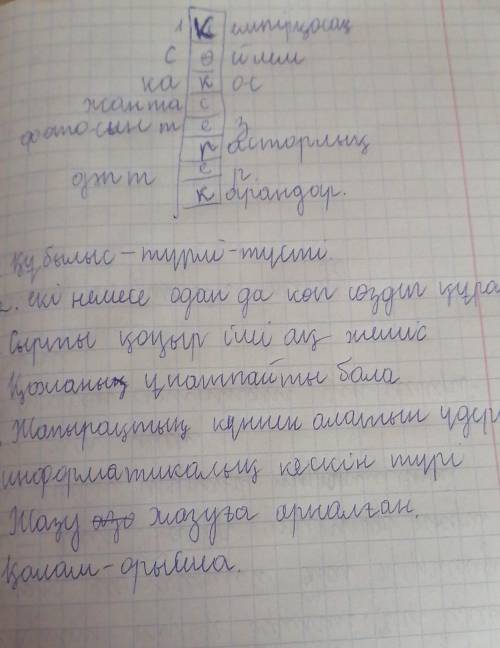 1 К емпірқосақ
с ө йлем
ка к ос
жанта с
фотосинт е з
р асторлық
дәпт е р
к арандар.
Құбылыс – түрлі-түсті.
2. екі немесе одан да көп сөздің құрал
Сырты қоңыр іші ақ жеміс
Қожаның ұнатпайты бала
Жапырақтың күннен алатын үдер
информатикалық кескін түрі
Жазу жазуға арналған.
Қалам – орысша.